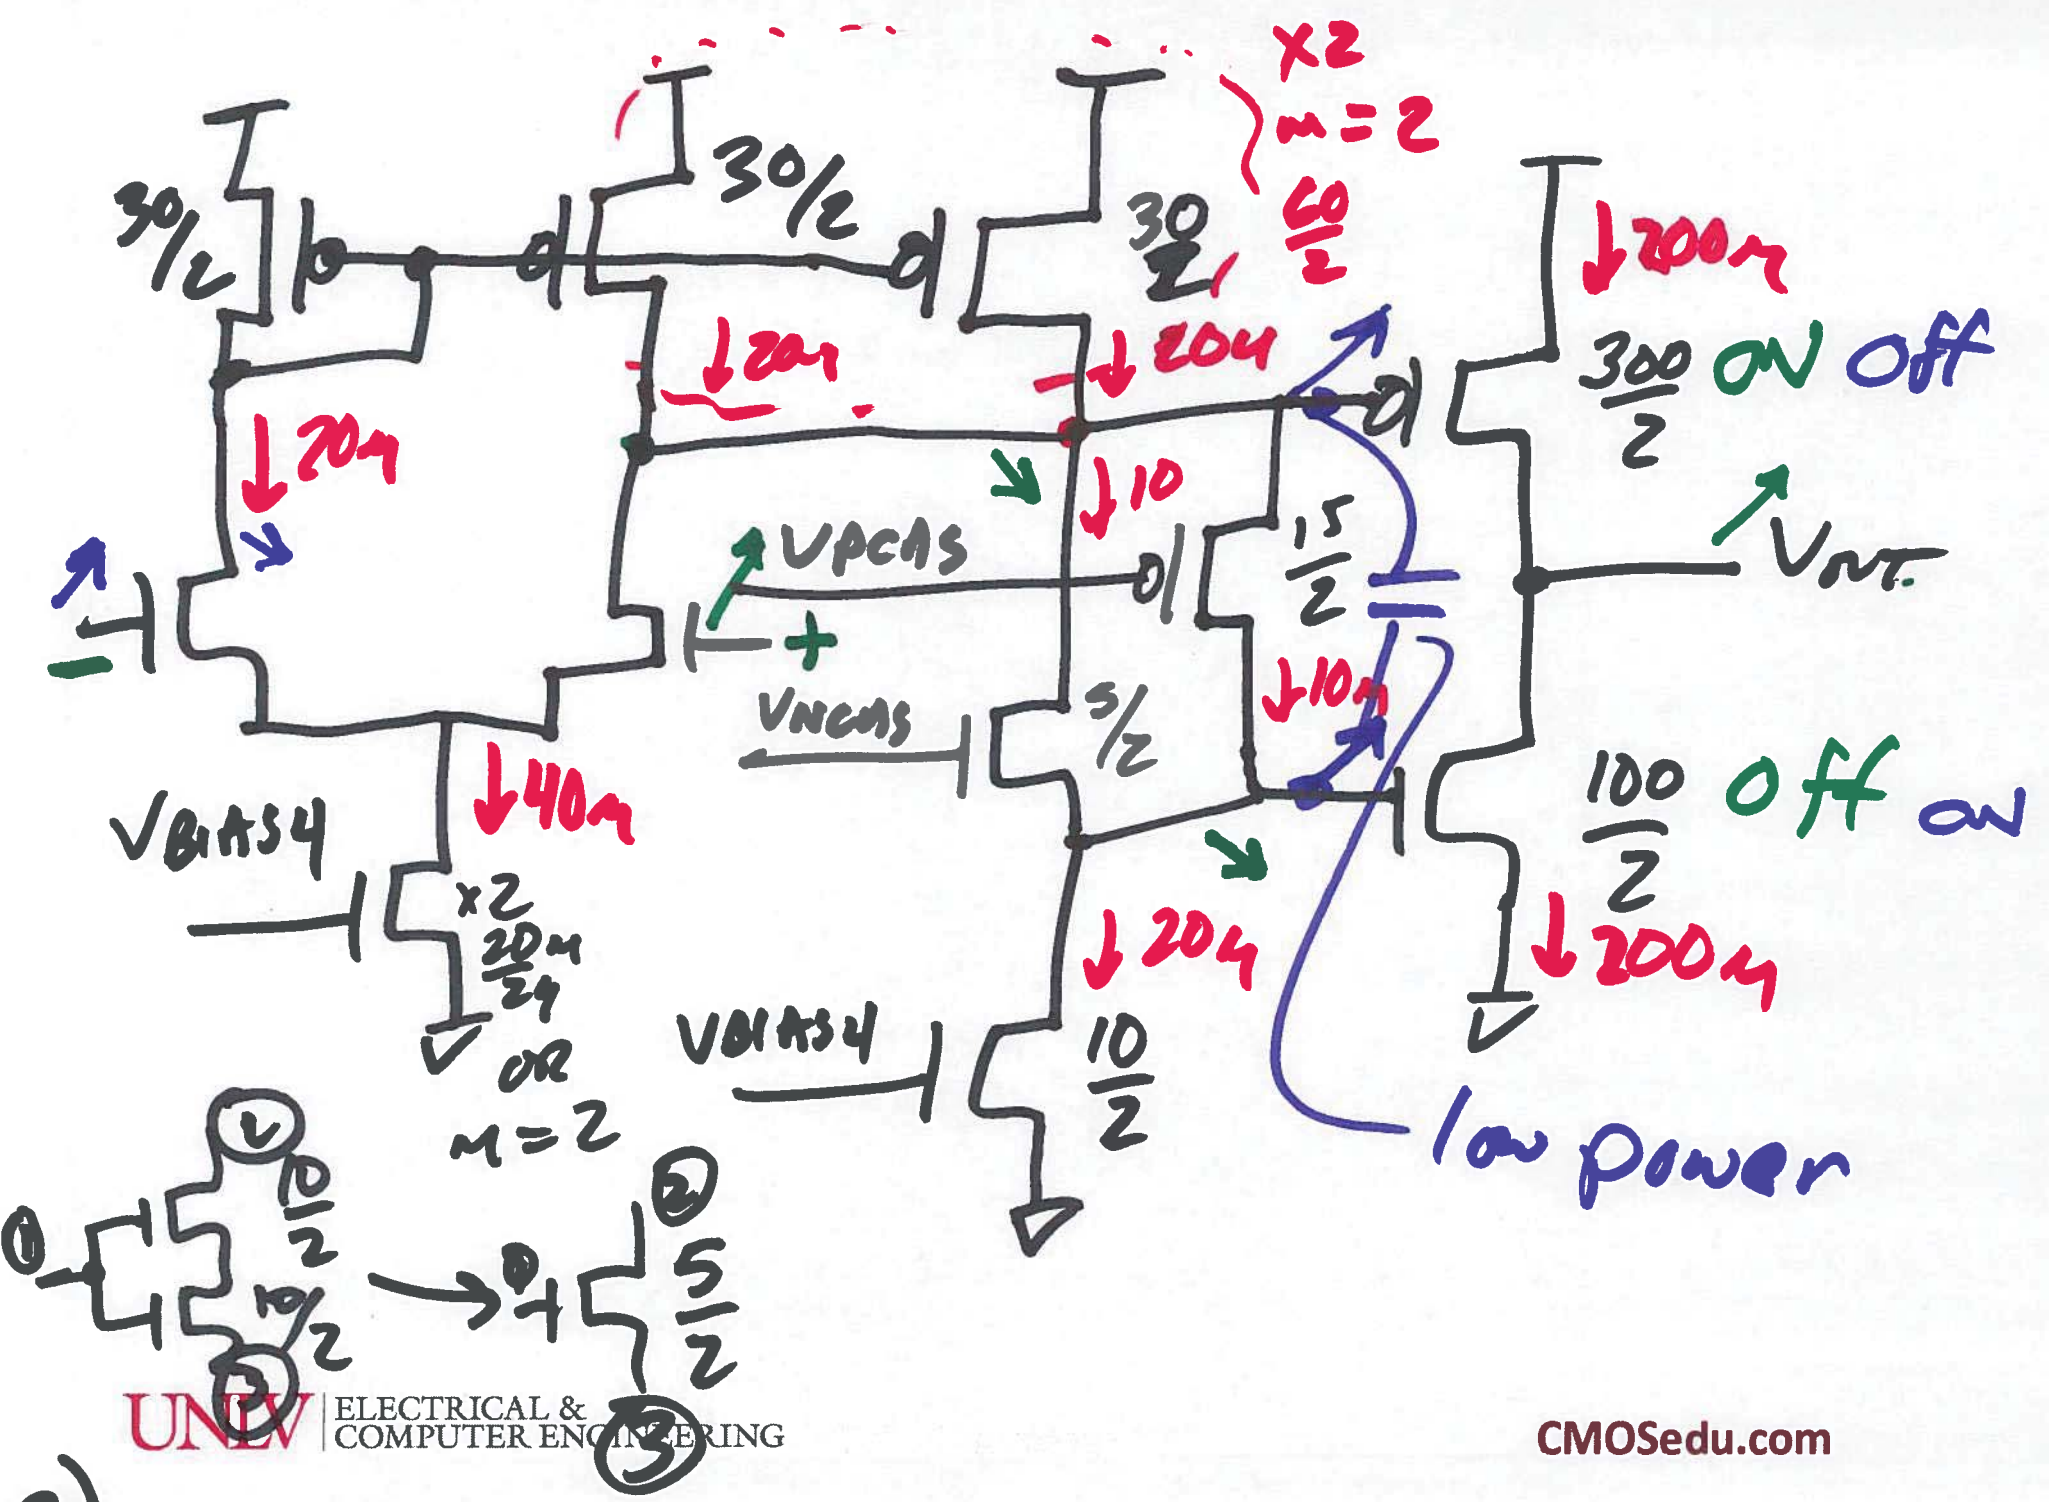 x2
m = 2
30/2
30/2
30
2
60
2
↓200μ
300
2
ON
Off
↓20μ
↓20μ
↓20μ
↓10
VPCAS
+
-
15
2
VOUT
VNCAS
5/2
↓10μ
↓40μ
VBIAS4
x2
20μ
2μ
OR
m = 2
100
2
Off
ON
↓20μ
↓200μ
VBIAS4
10
2
low power
10
2
1
10/2
3
2
1
5
2
3
UNLV
ELECTRICAL &
COMPUTER ENGINEERING
CMOSedu.com